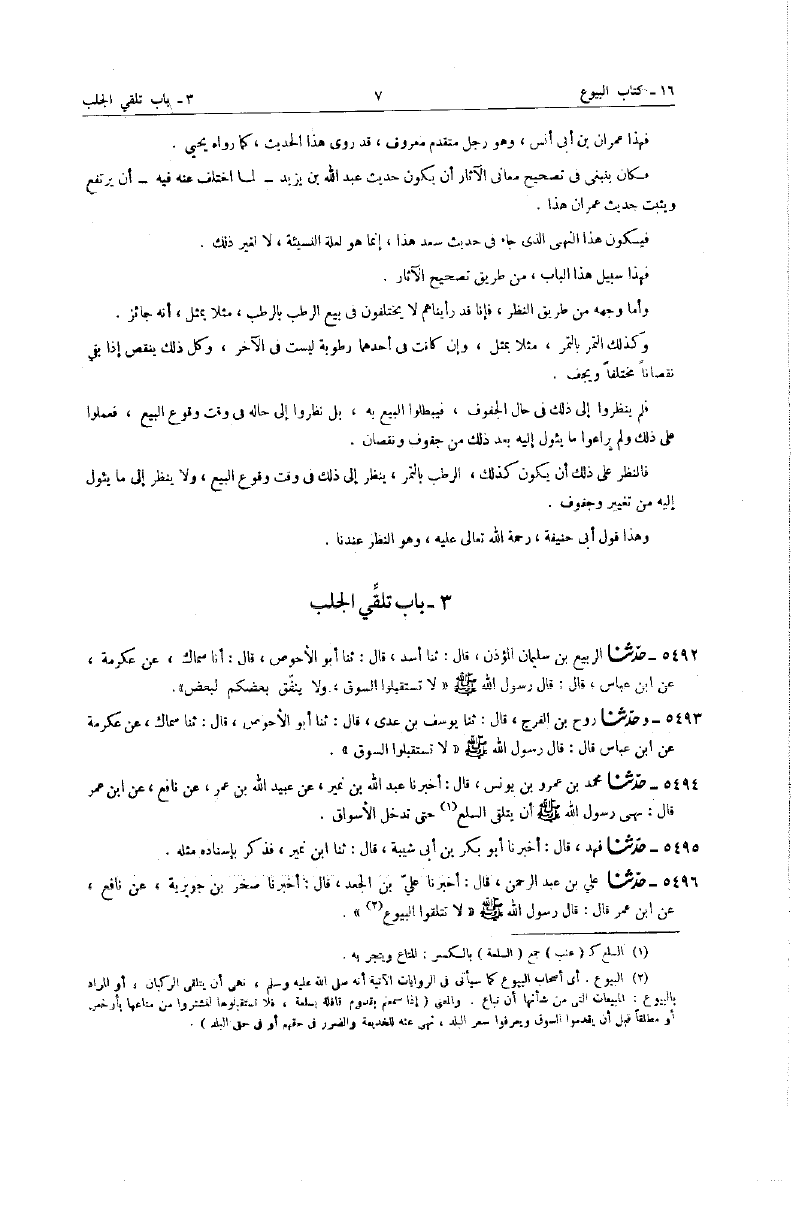 ١٦ ـ كتاب البيوع ٧ ٣ ـ باب تلقي الجلب
فهذا عمران بن أبى أنس ، وهو رجل متقدم معروف ، قد روى هذا الحديث ، كما رواه يحيي .
فكان ينبغى فى تصحيح معانى الآثار أن يكون حديث عبد الله بن يزيد ـ لما اختلف عنه فيه ـ أن يرتفع
ويثبت حديث عمران هذا .
فيكون هذا النهى الذى جاء فى حديث سعد هذا ، إنما هو لعلة النسيئة ، لا لغير ذلك .
فهذا سبيل هذا الباب ، من طريق تصحيح الآثار .
وأما وجهه من طريق النظر ، فإنا قد رأيناهم لا يختلفون فى بيع الرطب بالرطب ، مثلا بمثل ، أنه جائز .
وكذلك التمر بالتمر ، مثلا بمثل ، وإن كانت فى أحدهما رطوبة ليست فى الآخر ، وكل ذلك ينقص إذا بقي
نقصاناً مختلفاً ويجف .
فلم ينظروا إلى ذلك فى حال الجفوف ، فيبطلوا البيع به ، بل نظروا إلى حاله فى وقت وقوع البيع ، فعملوا
على ذلك ولم يراعوا ما يئول إليه بعد ذلك من جفوف ونقصان .
فالنظر على ذلك أن يكون كذلك ، الرطب بالتمر ، ينظر إلى ذلك فى وقت وقوع البيع ، ولا ينظر إلى ما يئول
إليه من تغيير وجفوف .
وهذا قول أبى حنيفة ، رحمة الله تعالى عليه ، وهو النظر عندنا .
٣ ـ باب تلقَّي الجلب
٥٤٩٢ ـ حدّثنا الربيع بن سليمان المؤذن ، قال : ثنا أسد ، قال : ثنا أبو الأحوص ، قال : أنا سماك ، عن عكرمة ،
عن ابن عباس ، قال : قال رسول الله ﷺ « لا تستقبلوا السوق ، ولا ينفّق بعضكم لبعض» .
٥٤٩٣ ـ وحدّثنا روح بن الفرج ، قال : ثنا يوسف بن عدى ، قال : ثنا أبو الأحوص ، قال : ثنا سماك ، عن عكرمة
عن ابن عباس قال : قال رسول الله ﷺ « لا تستقبلوا السوق » .
٥٤٩٤ ـ حدّثنا محمد بن عمرو بن يونس ، قال : أخبرنا عبد الله بن نمير ، عن عبيد الله بن عمر ، عن نافع ، عن ابن عمر
قال : نهى رسول الله ﷺ أن يتلقى السلع(١) حتى تدخل الأسواق .
٥٤٩٥ ـ حدّثنا فهد ، قال : أخبرنا أبو بكر بن أبى شيبة ، قال : ثنا ابن نمير ، فذكر بإسناده مثله .
٥٤٩٦ ـ حدّثنا علي بن عبد الرحمن ، قال : أخبرنا عليّ بن الجعد ، قال : أخبرنا صخر بن جويرية ، عن نافع ،
عن ابن عمر قال : قال رسول الله ﷺ « لا تتلقوا البيوع(٢) » .
(١) السلع كـ ( عنب ) جمع ( السلعة ) بالكسر : المتاع ويتجر به .
(٢) البيوع . أى أصحاب البيوع كما سيأتى فى الروايات الآتية أنه صلى الله عليه وسلم ، نهى أن يتلقى الركبان ، أو المراد
بالبيوع : المبيعات التى من شأنها أن تباع . والمعنى ( إذا سمعتم بقدوم قافلة بسلعة ، فلا تستقبلوها لتشتروا من متاعها بأرخص
أو مطلقاً قبل أن يقدموا السوق ويعرفوا سعر البلد ، نهى عنه للخديعة والضرر فى حقهم أو فى حق البلد ) .